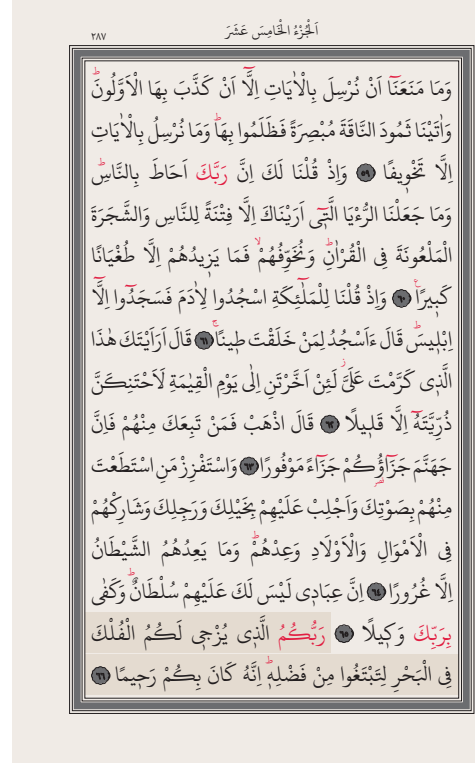 ٢٨٧
اَلْجُزْءُ الْخَامِسَ عَشَرَ
وَمَا مَنَعَنَٓا اَنْ نُرْسِلَ بِالْاٰيَاتِ اِلَّٓا اَنْ كَذَّبَ بِهَا الْاَوَّلُونَۜ
وَاٰتَيْنَا ثَمُودَ النَّاقَةَ مُبْصِرَةً فَظَلَمُوا بِهَاۜ وَمَا نُرْسِلُ بِالْاٰيَاتِ
اِلَّا تَخْوٖيفًا ﴿٥٩﴾ وَاِذْ قُلْنَا لَكَ اِنَّ رَبَّكَ اَحَاطَ بِالنَّاسِۜ
وَمَا جَعَلْنَا الرُّءْيَا الَّتٖٓى اَرَيْنَاكَ اِلَّا فِتْنَةً لِلنَّاسِ وَالشَّجَرَةَ
الْمَلْعُونَةَ فِى الْقُرْاٰنِۜ وَنُخَوِّفُهُمْۙ فَمَا يَزٖيدُهُمْ اِلَّا طُغْيَانًا
كَبٖيرًاࣖ ﴿٦٠﴾ وَاِذْ قُلْنَا لِلْمَلٰٓئِكَةِ اسْجُدُوا لِاٰدَمَ فَسَجَدُٓوا اِلَّٓا
اِبْلٖيسَۜ قَالَ ءَاَسْجُدُ لِمَنْ خَلَقْتَ طٖينًاۚ ﴿٦١﴾ قَالَ اَرَاَيْتَكَ هٰذَا
الَّذٖى كَرَّمْتَ عَلَىَّؗ لَئِنْ اَخَّرْتَنِ اِلٰى يَوْمِ الْقِيٰمَةِ لَاَحْتَنِكَنَّ
ذُرِّيَّتَهُٓ اِلَّا قَلٖيلًا ﴿٦٢﴾ قَالَ اذْهَبْ فَمَنْ تَبِعَكَ مِنْهُمْ فَاِنَّ
جَهَنَّمَ جَزَٓاؤُ۬كُمْ جَزَٓاءً مَوْفُورًا ﴿٦٣﴾ وَاسْتَفْزِزْ مَنِ اسْتَطَعْتَ
مِنْهُمْ بِصَوْتِكَ وَاَجْلِبْ عَلَيْهِمْ بِخَيْلِكَ وَرَجِلِكَ وَشَارِكْهُمْ
فِى الْاَمْوَالِ وَالْاَوْلَادِ وَعِدْهُمْۜ وَمَا يَعِدُهُمُ الشَّيْطَانُ
اِلَّا غُرُورًا ﴿٦٤﴾ اِنَّ عِبَادٖى لَيْسَ لَكَ عَلَيْهِمْ سُلْطَانٌۜ وَكَفٰى
بِرَبِّكَ وَكٖيلًا ﴿٦٥﴾ رَبُّكُمُ الَّذٖى يُزْجٖى لَكُمُ الْفُلْكَ
فِى الْبَحْرِ لِتَبْتَغُوا مِنْ فَضْلِهٖۜ اِنَّهُ كَانَ بِكُمْ رَحٖيمًا ﴿٦٦﴾